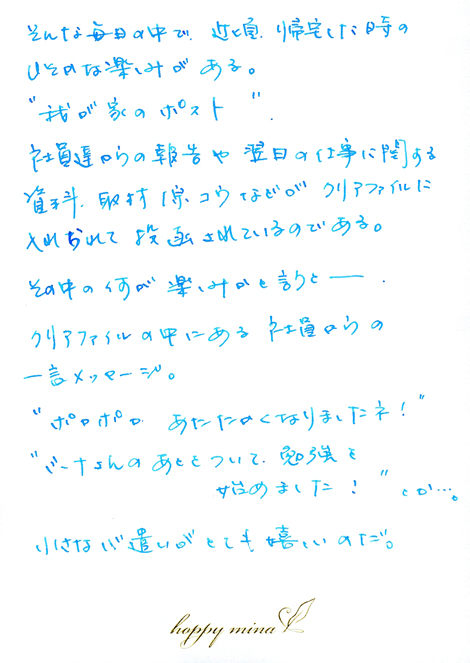 そんな毎日の中で、近頃、帰宅した時の
ひそかな楽しみがある。
"我が家のポスト"
社員達からの報告や翌日の仕事に関する
資料、取材原コウなどがクリアファイルに
入れられて投函されているのである。
その中の何が楽しみかと言うと──
クリアファイルの中にある社員からの
一言メッセージ。
"ポカポカ あたたかくなりましたネ!"
"さんのあとをついて、勉強を
始めました!"とか…。
小さな心遣いがとても嬉しいのだ。
happy mina